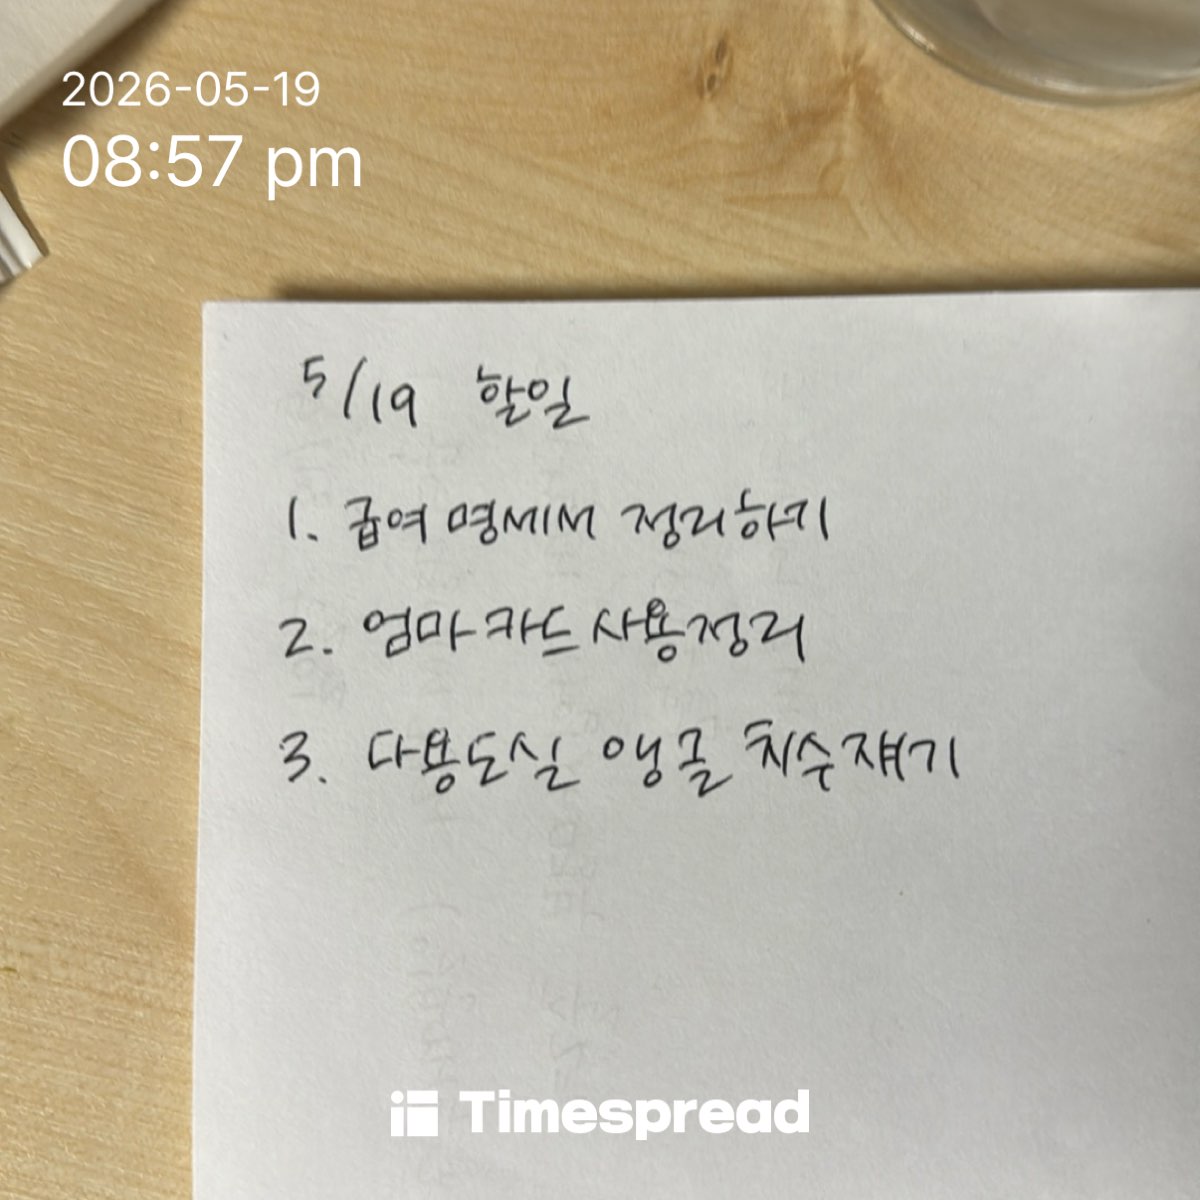 2026-05-19
08:57 pm
5/19 할일
1. 급여 명세서 정리하기
2. 엄마카드 사용정리
3. 다용도실 앵글 치수재기
Timespread